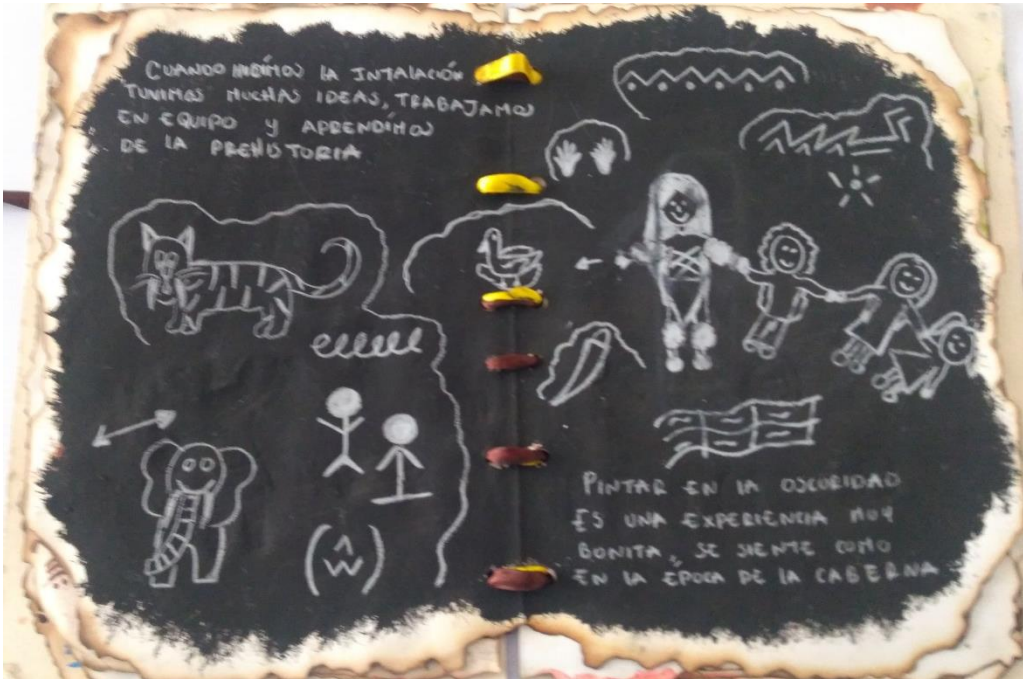 CUANDO HICIMOS LA INTALACIÓN
TUVIMOS MUCHAS IDEAS, TRABAJAMOS
EN EQUIPO Y APRENDIMOS
DE LA PREHISTORIA.
PINTAR EN LA OSCURIDAD
ES UNA EXPERIENCIA MUY
BONITA, SE SIENTE COMO
EN LA ÉPOCA DE LA CABERNA.